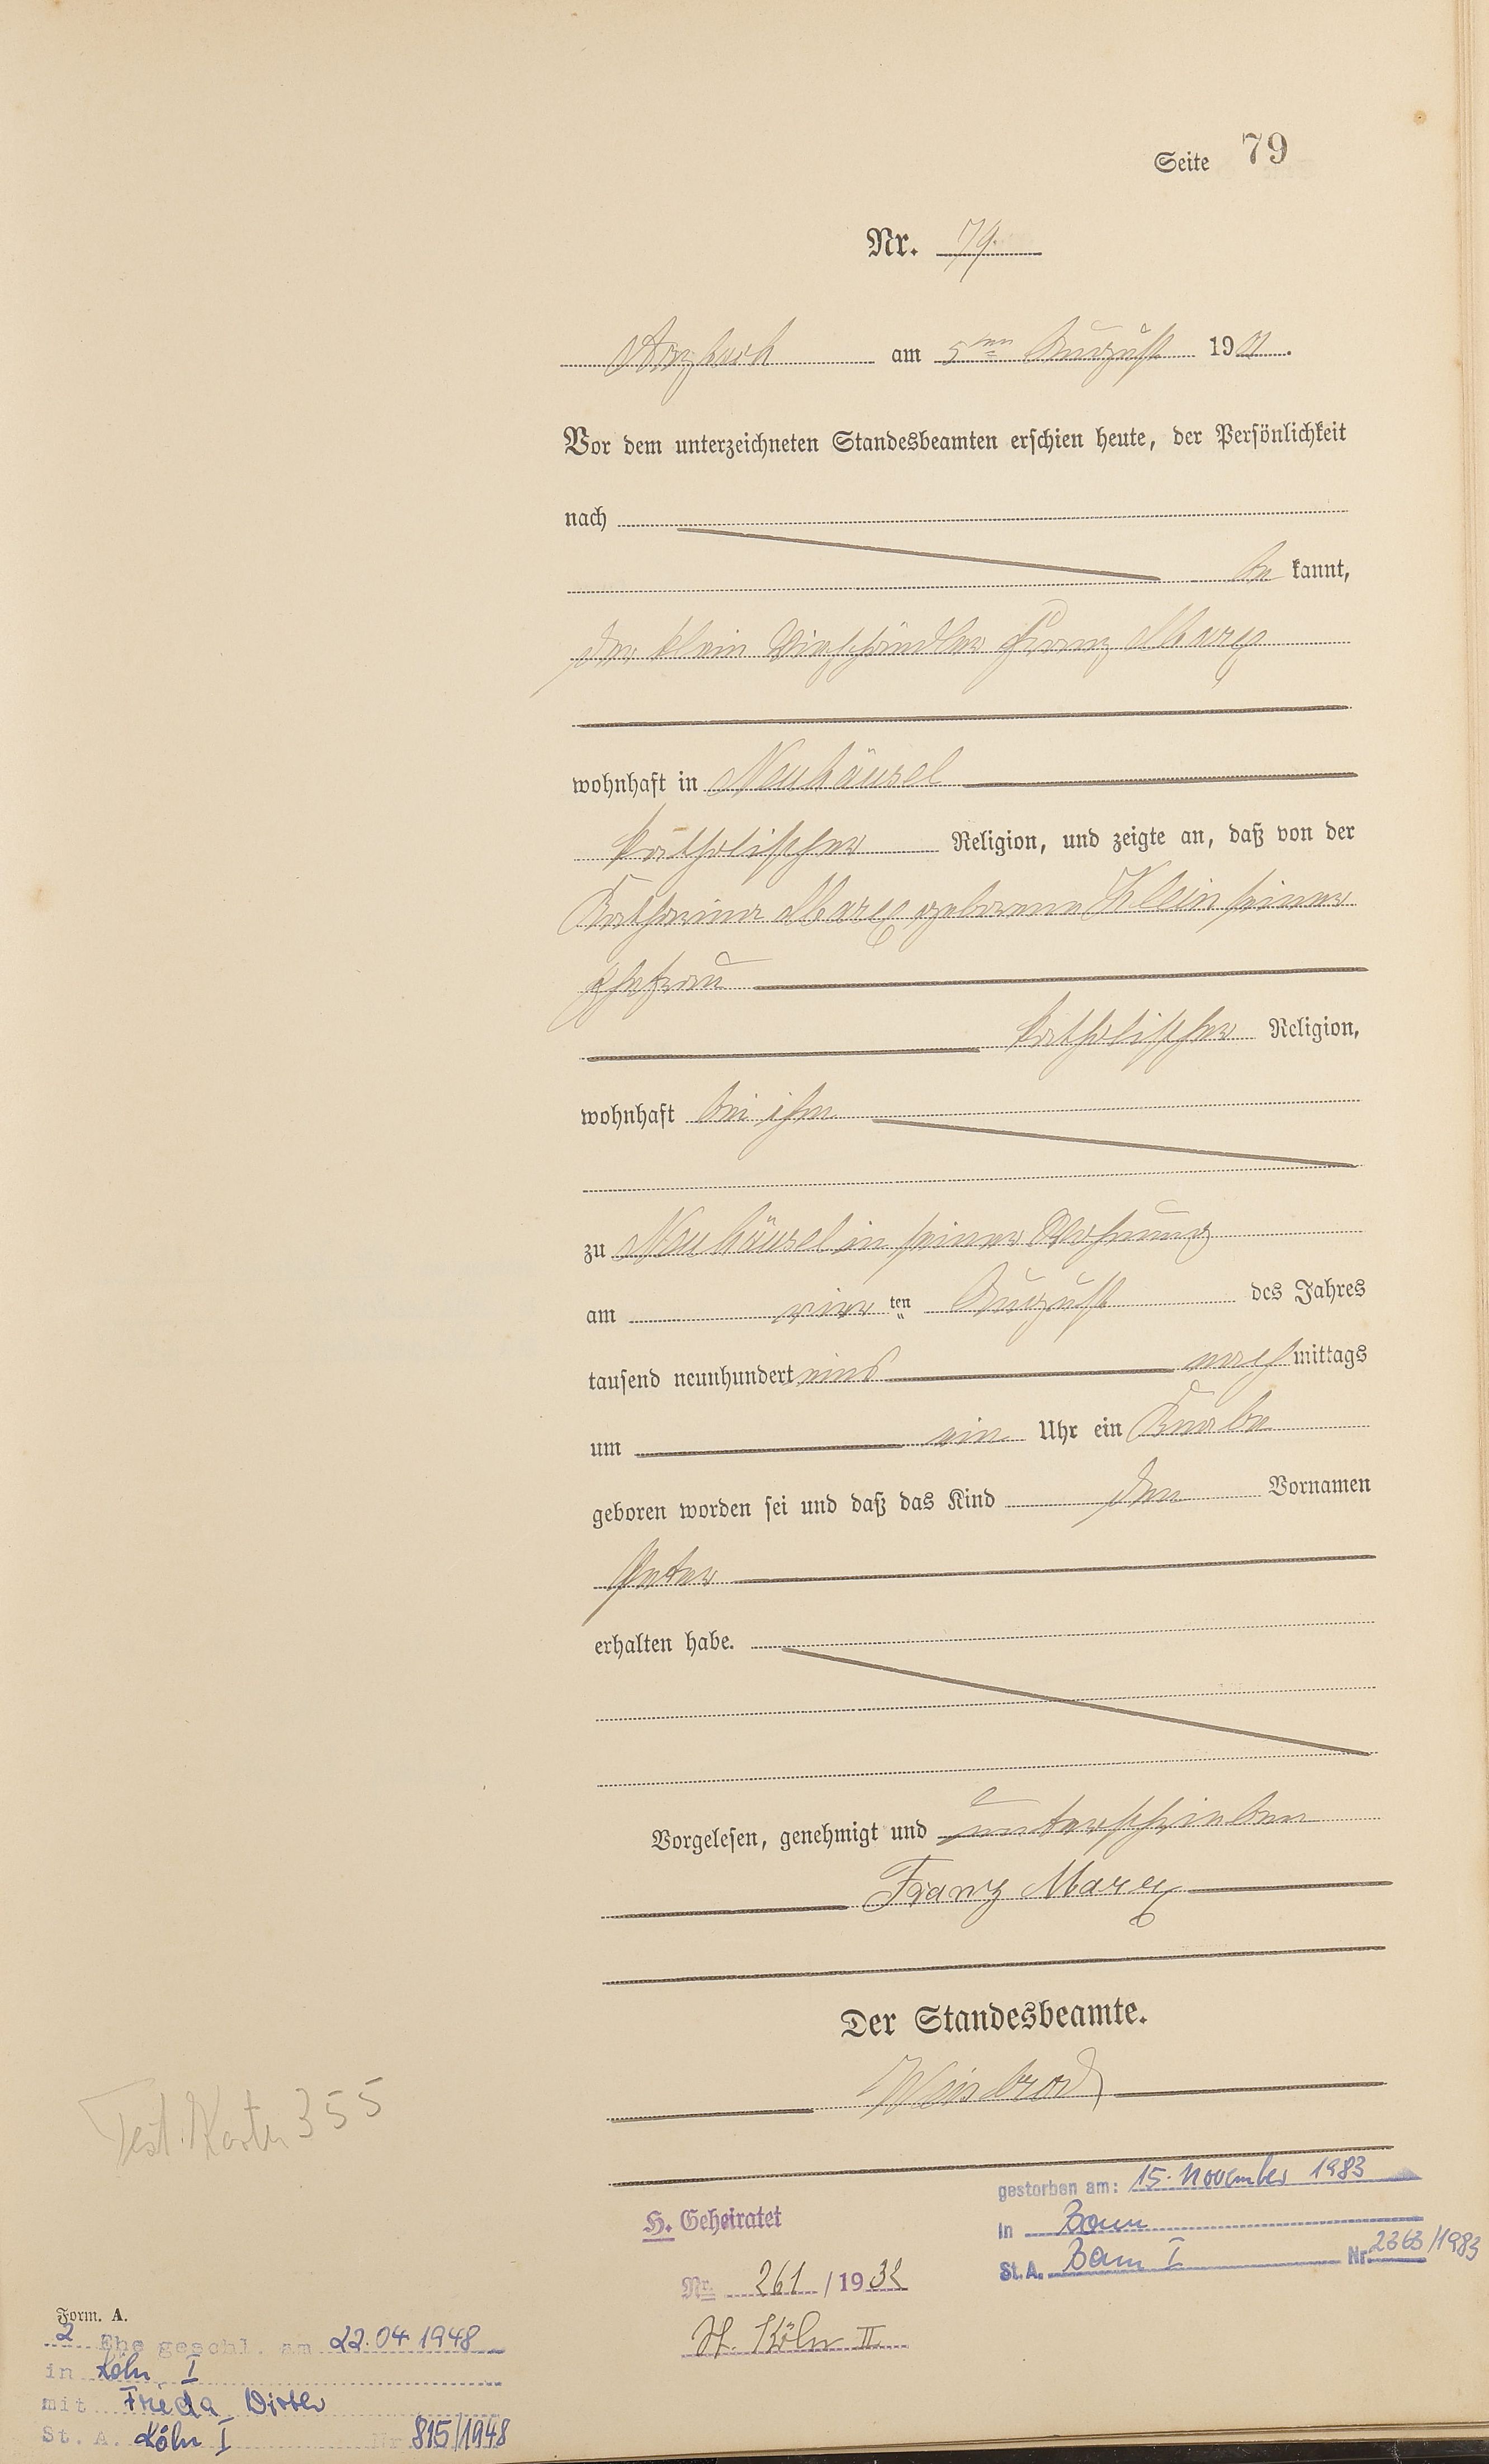 Seite 79
Nr. 79.
Arzbach am 5ten August 1901.
Vor dem unterzeichneten Standesbeamten erschien heute, der Persönlichkeit
nach
be kannt,
der klein Viehhändler Franz Marx
wohnhaft in Neuhäusel
katholischer Religion, und zeigte an, daß von der
Katharina Marx geborene Klein seiner
Ehefrau
katholischer Religion,
wohnhaft bei ihm
zu Neuhäusel in seiner Wohnung
am vier ten August des Jahres
tausend neunhundert eins nach mittags
um ein Uhr ein Knabe
geboren worden sei und daß das Kind den Vornamen
Peter
erhalten habe.
Vorgelesen, genehmigt und unterschrieben
Franz Marx
Der Standesbeamte.
Weisbrod
Test. Karte 355
gestorben am: 15. November 1983
in Bonn
St.A. Bonn I Nr. 2363/1983
H. Geheiratet
Nr. 261 / 1932
St. Köln II
Form. A.
2 Ehe geschl. am 22.04.1948
in Köln I
mit Frieda
St. A. Köln I Nr 815/1948